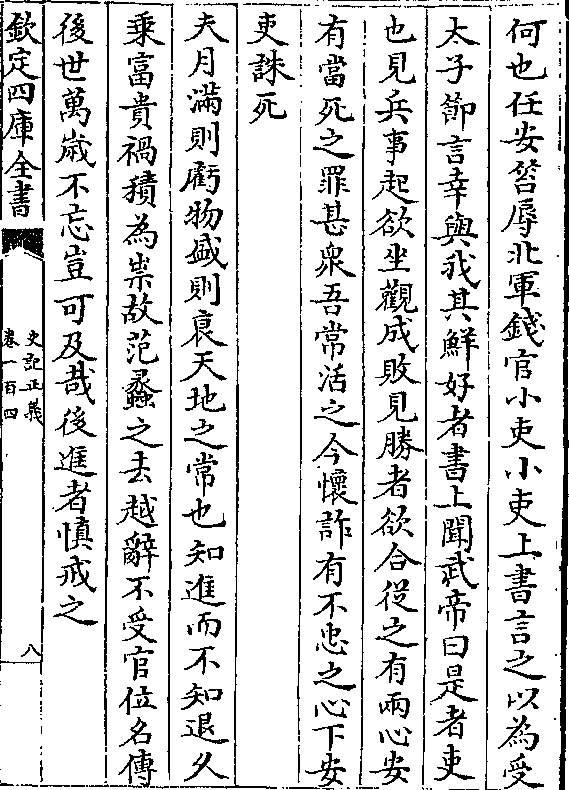 何也任安笞辱北軍錢官小吏小吏上書言之以為受
太子節言幸與我其鮮好者書上聞武帝曰是老吏
也見兵事起欲坐觀成敗見勝者欲合從之有兩心安
有當死之罪甚衆吾常活之今懷詐有不忠之心下安
吏誅死
夫月滿則虧物盛則衰天地之常也知進而不知退久
乘富貴禍積為祟故范蠡之去越辭不受官位名傳
後世萬歲不忘豈可及哉後進者慎戒之
欽定四庫全書
史記正義
卷一百四
八